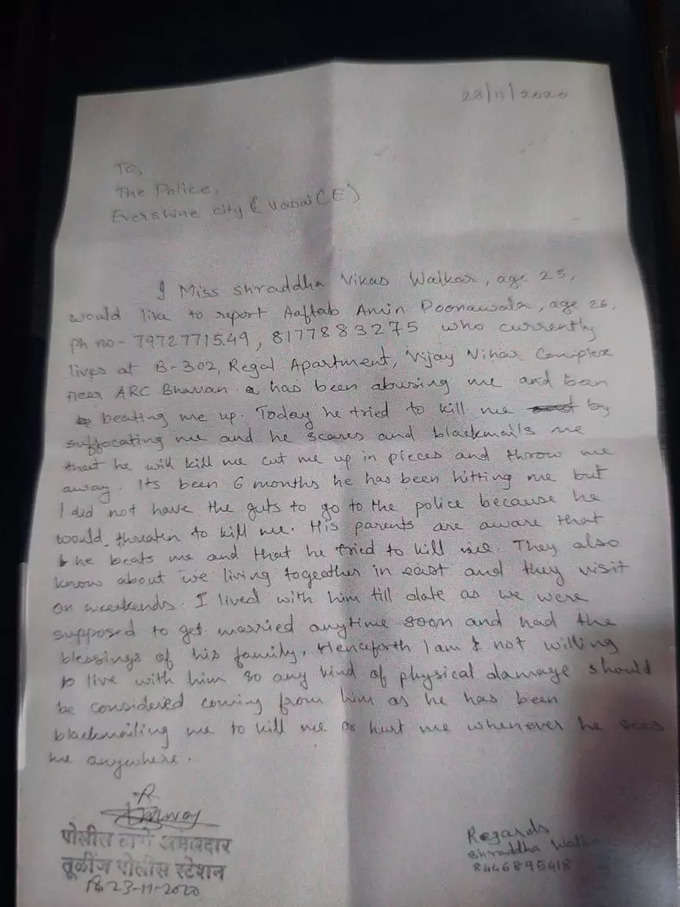 23/11/2020
To,
The Police,
Evershine city (Vasai (E)
I Miss Shraddha Vikas Walkar, age 25,
would like to report Aaftab Amin Poonawala, age 26,
Ph no- 7972771549, 8177883275 who currently
lives at B-302, Regal Apartment, Vijay Vihar Complex
near ARC Bhavan has been abusing me and been
beating me up. Today he tried to kill me by
suffocating me and he scares and blackmails me
that he will kill me cut me up in pieces and throw me
away. Its been 6 months he has been hitting me but
I did not have the guts to go to the police because he
would threaten to kill me. His parents are aware that
he beats me and that he tried to kill me. They also
know about we living togeather in east and they visit
on weekends. I lived with him till date as we were
supposed to get married anytime soon and had the
blessings of his family. Henceforth I am not willing
to live with him so any kind of physical damage should
be considered coming from him as he has been
blackmailing me to kill me or hurt me whenever he sees
me anywhere.
पोलीस ठाणे अंमलदार
तूळींज पोलीस स्टेशन
23-11-2020
Regards
Shraddha Walkar
8446895418